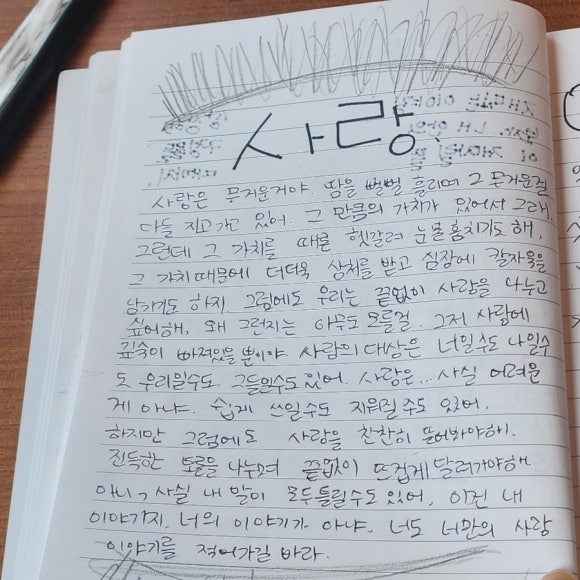 사랑
사랑은 무거운거야. 땀을 뻘뻘 흘리며 그 무거운걸
다들 지고가고 있어. 그 만큼의 가치가 있어서 그래.
그런데 그 가치를 때론 헷갈려 눈물 훔치기도 해.
그 가치 때문에 더더욱 상처를 받고 심장에 칼자욱을
남기기도 하지 그럼에도 우리는 끝없이 사랑을 나누고
싶어해, 왜 그런지는 아무도 모를걸. 그저 사랑에
깊숙이 빠져있을 뿐이야 사랑의 대상은 너일수도 나일수
도 우리일수도 그들일수도 있어. 사랑은... 사실 어려운
게 아냐. 쉽게 쓰일수도 지워질 수도 있어.
하지만 그럼에도 사랑을 찬찬히 뜯어봐야해.
진득한 포를 나누며 끝없이 뜨겁게 달려가야해
아니, 사실 내 말이 모두 틀릴수도 있어. 이건 내
이야기지, 너의 이야기가 아냐. 너도 너만의 사랑
이야기를 적어가길 바라.